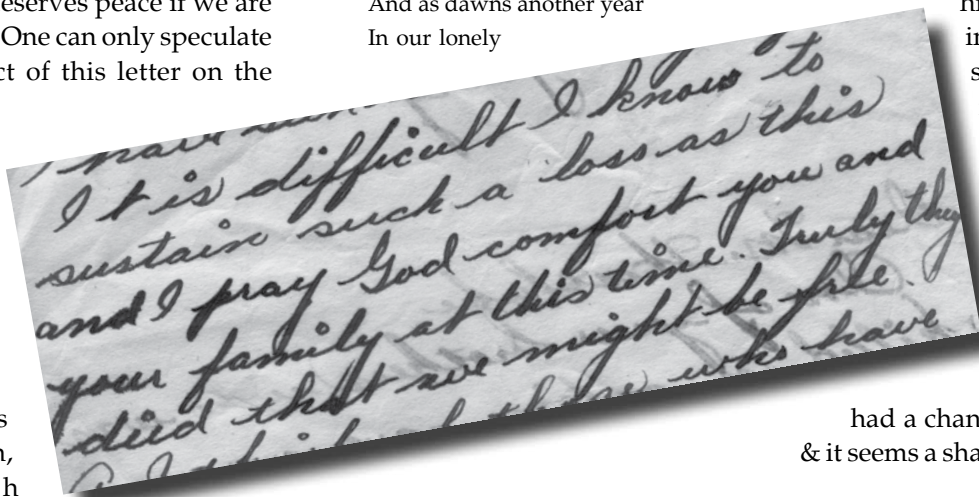 eserves peace if we are
One can only speculate
ct of this letter on the
And as dawns another year
In our lonely
hi
in
s
I have
It is difficult I know to
sustain such a loss as this
and I pray God comfort you and
your family at this time. Truly they
died that we might be free.
who have
s
n,
h
had a chan
& it seems a sha